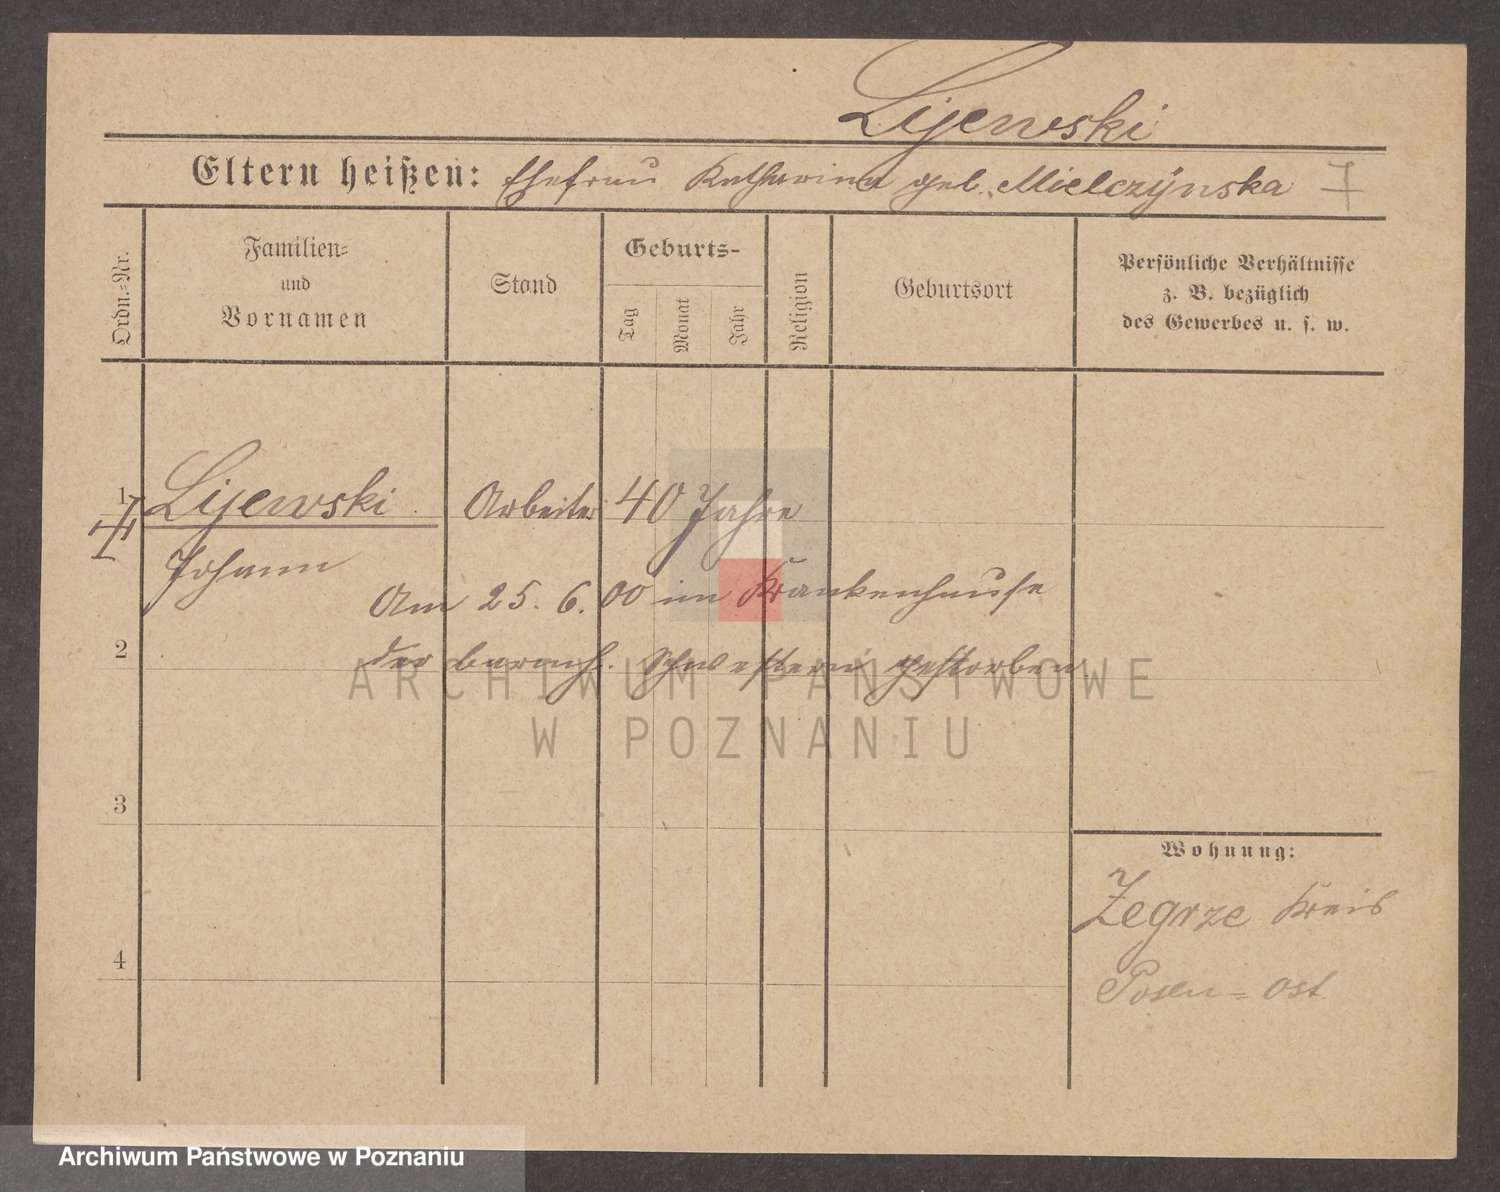 Lijewski
Eltern heißen: Ehefrau Katharina geb. Mielczÿnska
Ordn.-Nr.
Familien-
und
Vornamen
Stand
Geburts-
Tag
Monat
Jahr
Religion
Geburtsort
Persönliche Verhältnisse
z. B. bezüglich
des Gewerbes u. s. w.
1 Lijewski Arbeiter 40 Jahre
Johann
Am 25. 6. 00 im Krankenhause
2
der barmh. Schwestern gestorben
ARCHIWUM PAŃSTWOWE
W POZNANIU
3
Wohnung:
Zegrze Kreis
4
Posen-Ost
Archiwum Państwowe w Poznaniu